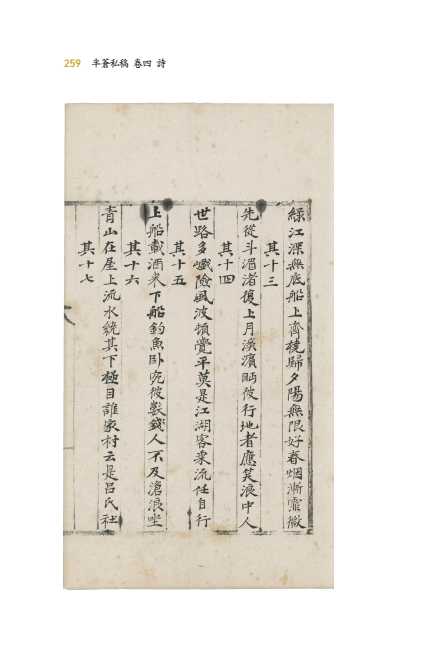 259 半蒼私稿 卷四 詩
綠江深無底船上齊橈歸夕陽無限好春烟漸霏微
其十三
先從斗湄渚復上月溪濱眄彼行地者應笑浪中人
其十四
世路多巇險風波頓覺平莫是江湖客乘流任自行
其十五
上船載酒來下船釣魚卧究彼獸錢人不及滄浪坐
其十六
青山在屋上流水繞其下極目誰家村云是呂氏社
其十七